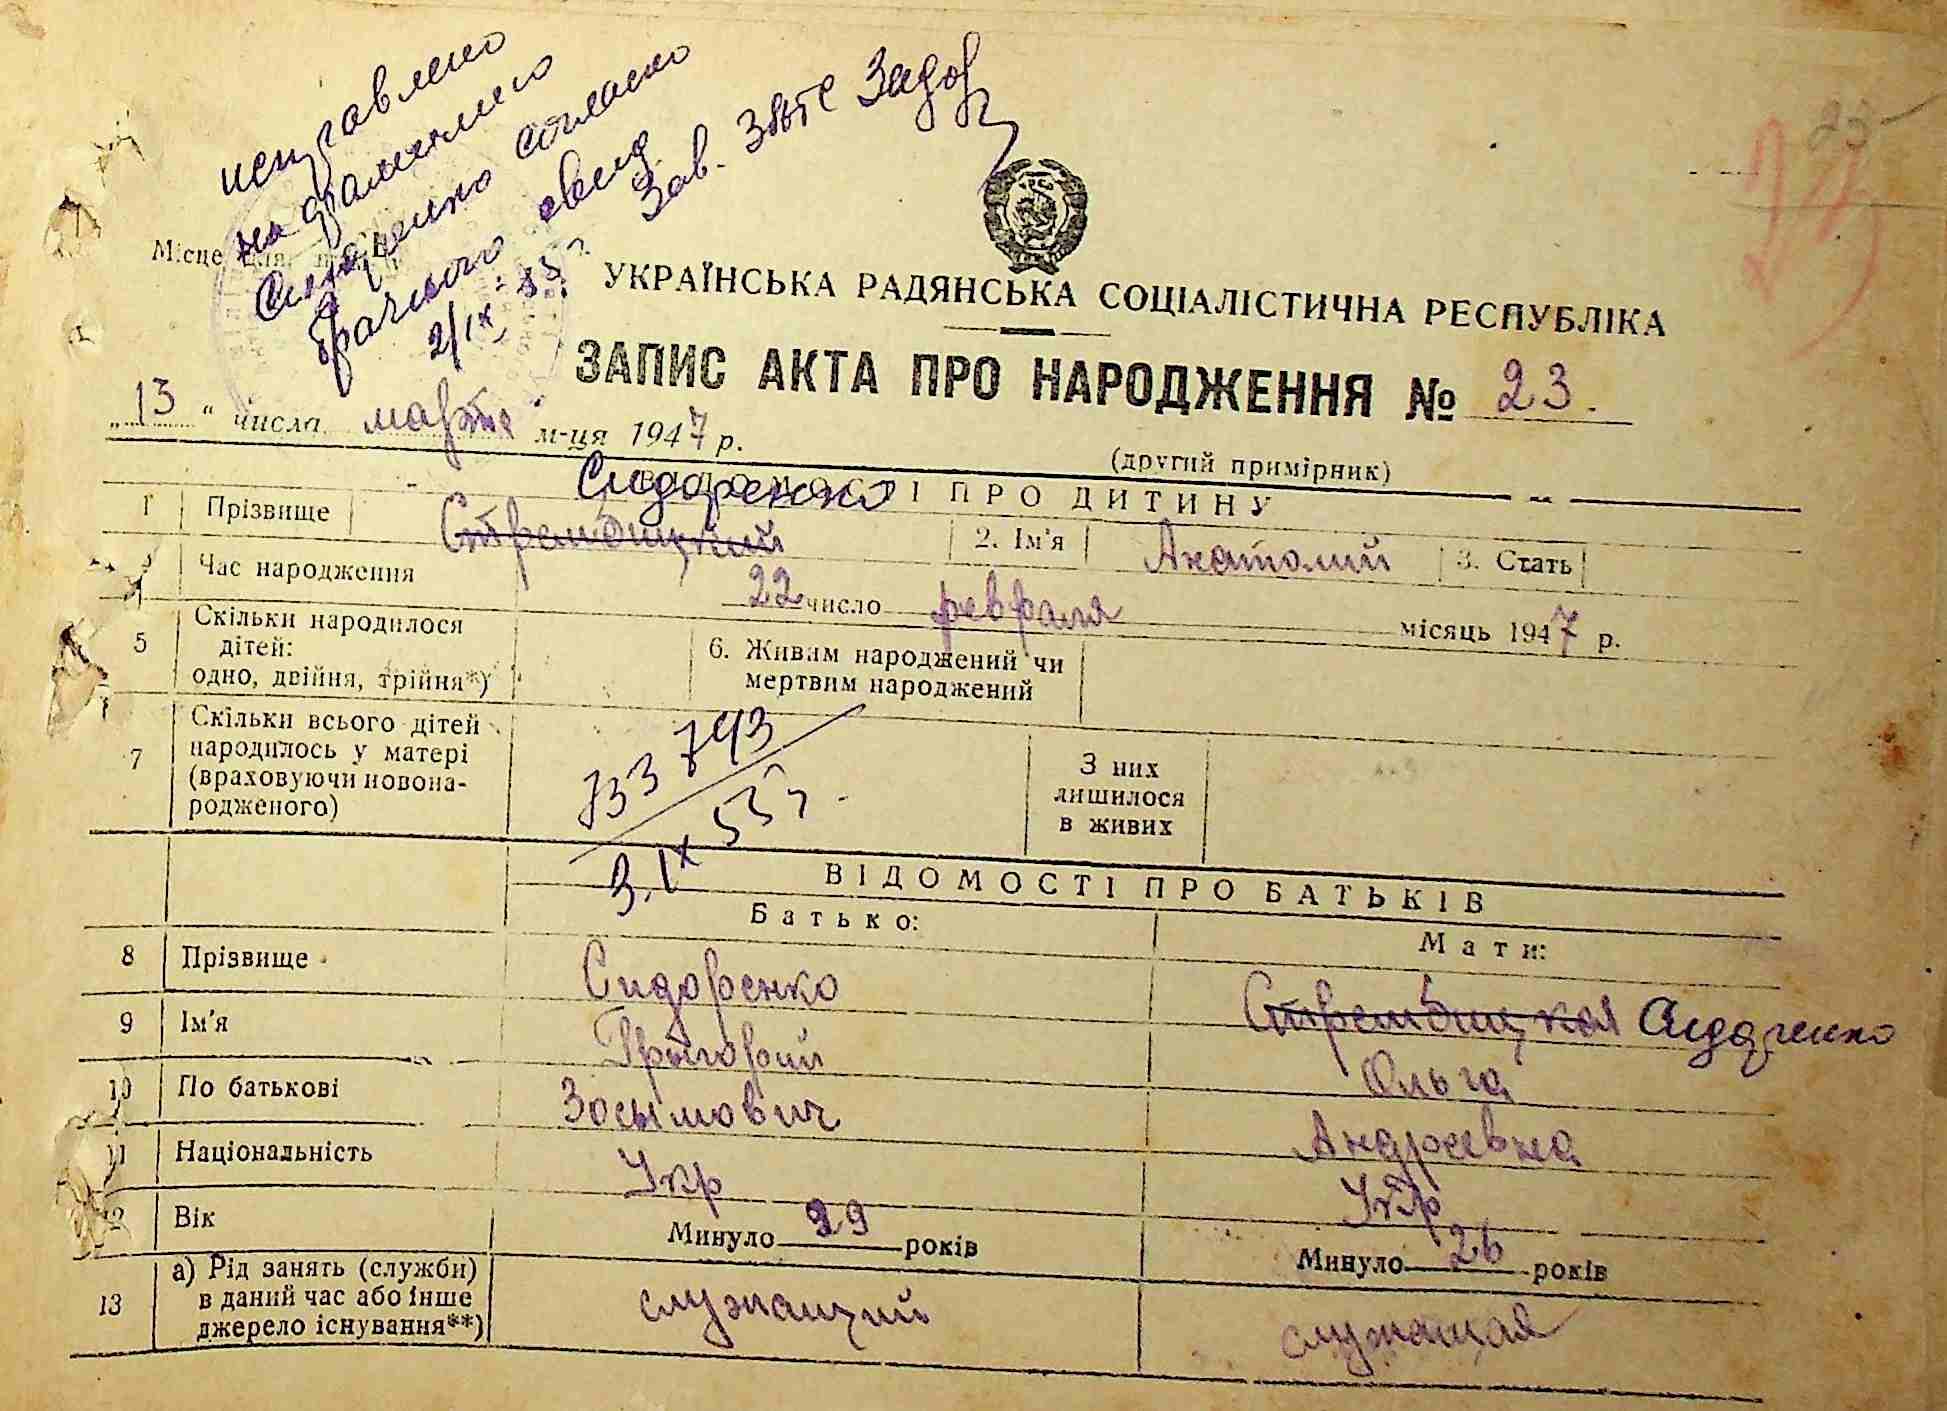 исправлено
на фамилию
Сидоренко согласно
брачного свид.
2/IX-53 г. Зав.
25
23
Місце для
УКРАЇНСЬКА РАДЯНСЬКА СОЦІАЛІСТИЧНА РЕСПУБЛІКА
ЗАПИС АКТА ПРО НАРОДЖЕННЯ № 23.
„13“ числа марта м-ця 1947 р.
(другий примірник)
Сидоренко
І ПРО ДИТИНУ
1 Прізвище Стрембицкий 2. Ім'я Анатолий 3. Стать
Час народження 22 число февраля місяць 1947 р.
5 Скільки народилося
дітей:
одно, двійня, трійня*)
6. Живим народжений чи
мертвим народжений
7 Скільки всього дітей
народилось у матері
(враховуючи новона-
родженого)
733743
3.IX 53 г.
З них
лишилося
в живих
ВІДОМОСТІ ПРО БАТЬКІВ
Батько: Мати:
8 Прізвище Сидоренко Стрембицкая Сидоренко
9 Ім'я Григорий Ольга
10 По батькові Зосымович Андреевна
11 Національність Укр Укр
12 Вік Минуло 29 років Минуло 26 років
13 а) Рід занять (служби)
в даний час або інше
джерело існування**)
служащий служащая